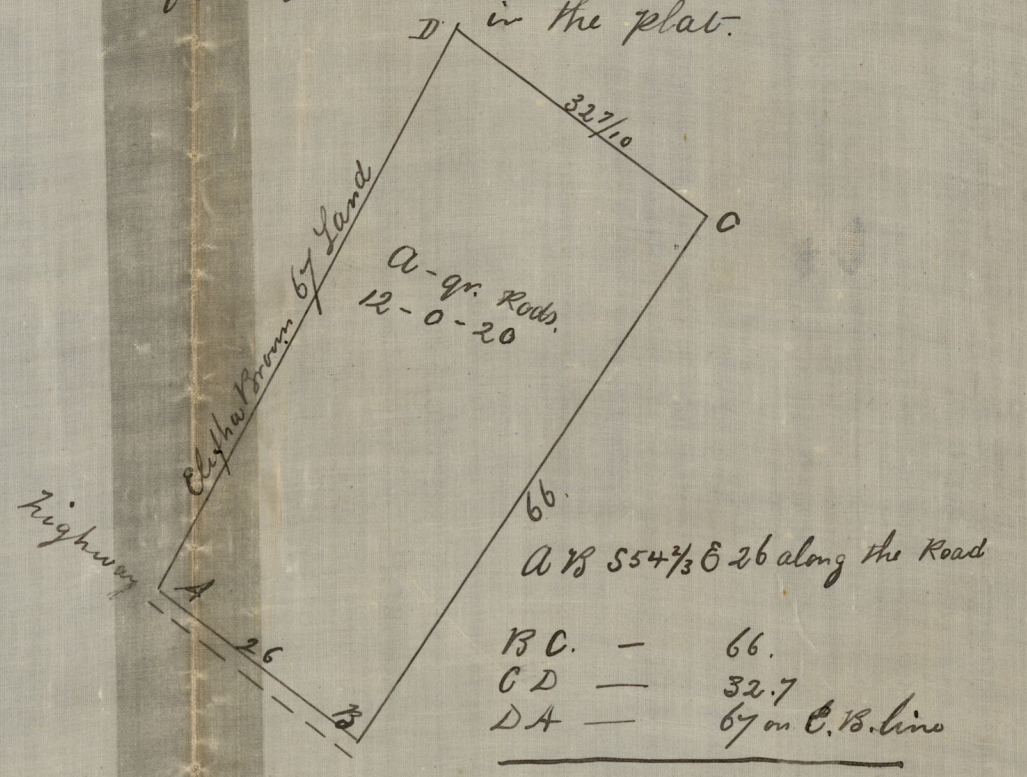 in the plat.
D
32 7/10
C
Elisha Brown 67 Land
A - qr. Rods.
12 - 0 - 20
66.
highway
A
26
B
A B S 54 2/3 E 26 along the Road
B C. — 66.
C D — 32.7
D A — 67 on E. B. line